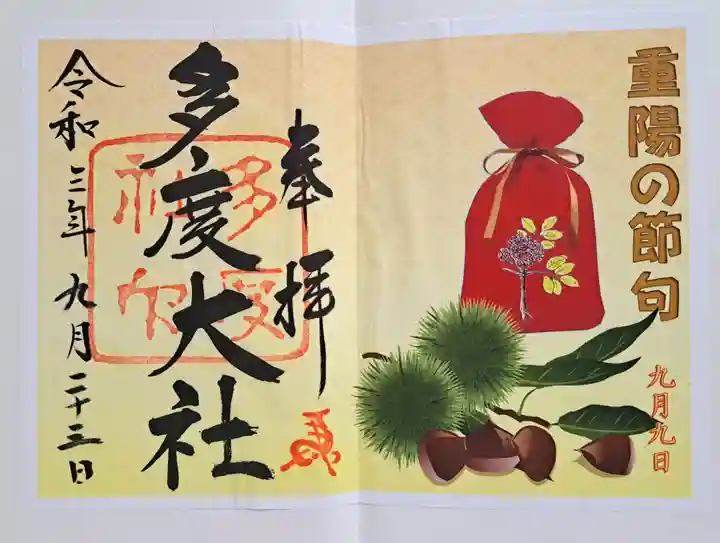 重陽の節句
九月九日
奉拝
多度大社
多度
大社
令和三年九月二十三日